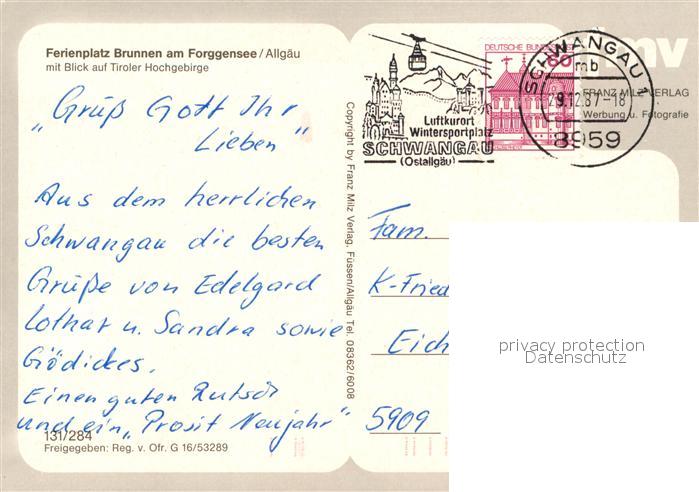 Ferienplatz Brunnen am Forggensee / Allgäu
mit Blick auf Tiroler Hochgebirge
„Gruß Gott Ihr
Lieben"
Aus dem herrlichen
Schwangau die besten
Grüße von Edelgard
Lothar u. Sandra sowie
Gödickes.
Einen guten Rutsch
und ein „Prosit Neujahr"
131/284
Freigegeben: Reg. v. Ofr. G 16/53289
Copyright by Franz Milz Verlag, Füssen/Allgäu Tel. 08362/6008
Luftkurort
Wintersportplatz
SCHWANGAU
(Ostallgäu)
DEUTSCHE BUNDESPOST
60
SCHWANGAU 1
mb
29.12.87-18
8959
fmv
FRANZ MILZ VERLAG
Werbung u. Fotografie
Fam.
K-Fried
Eich
5909
privacy protection
Datenschutz